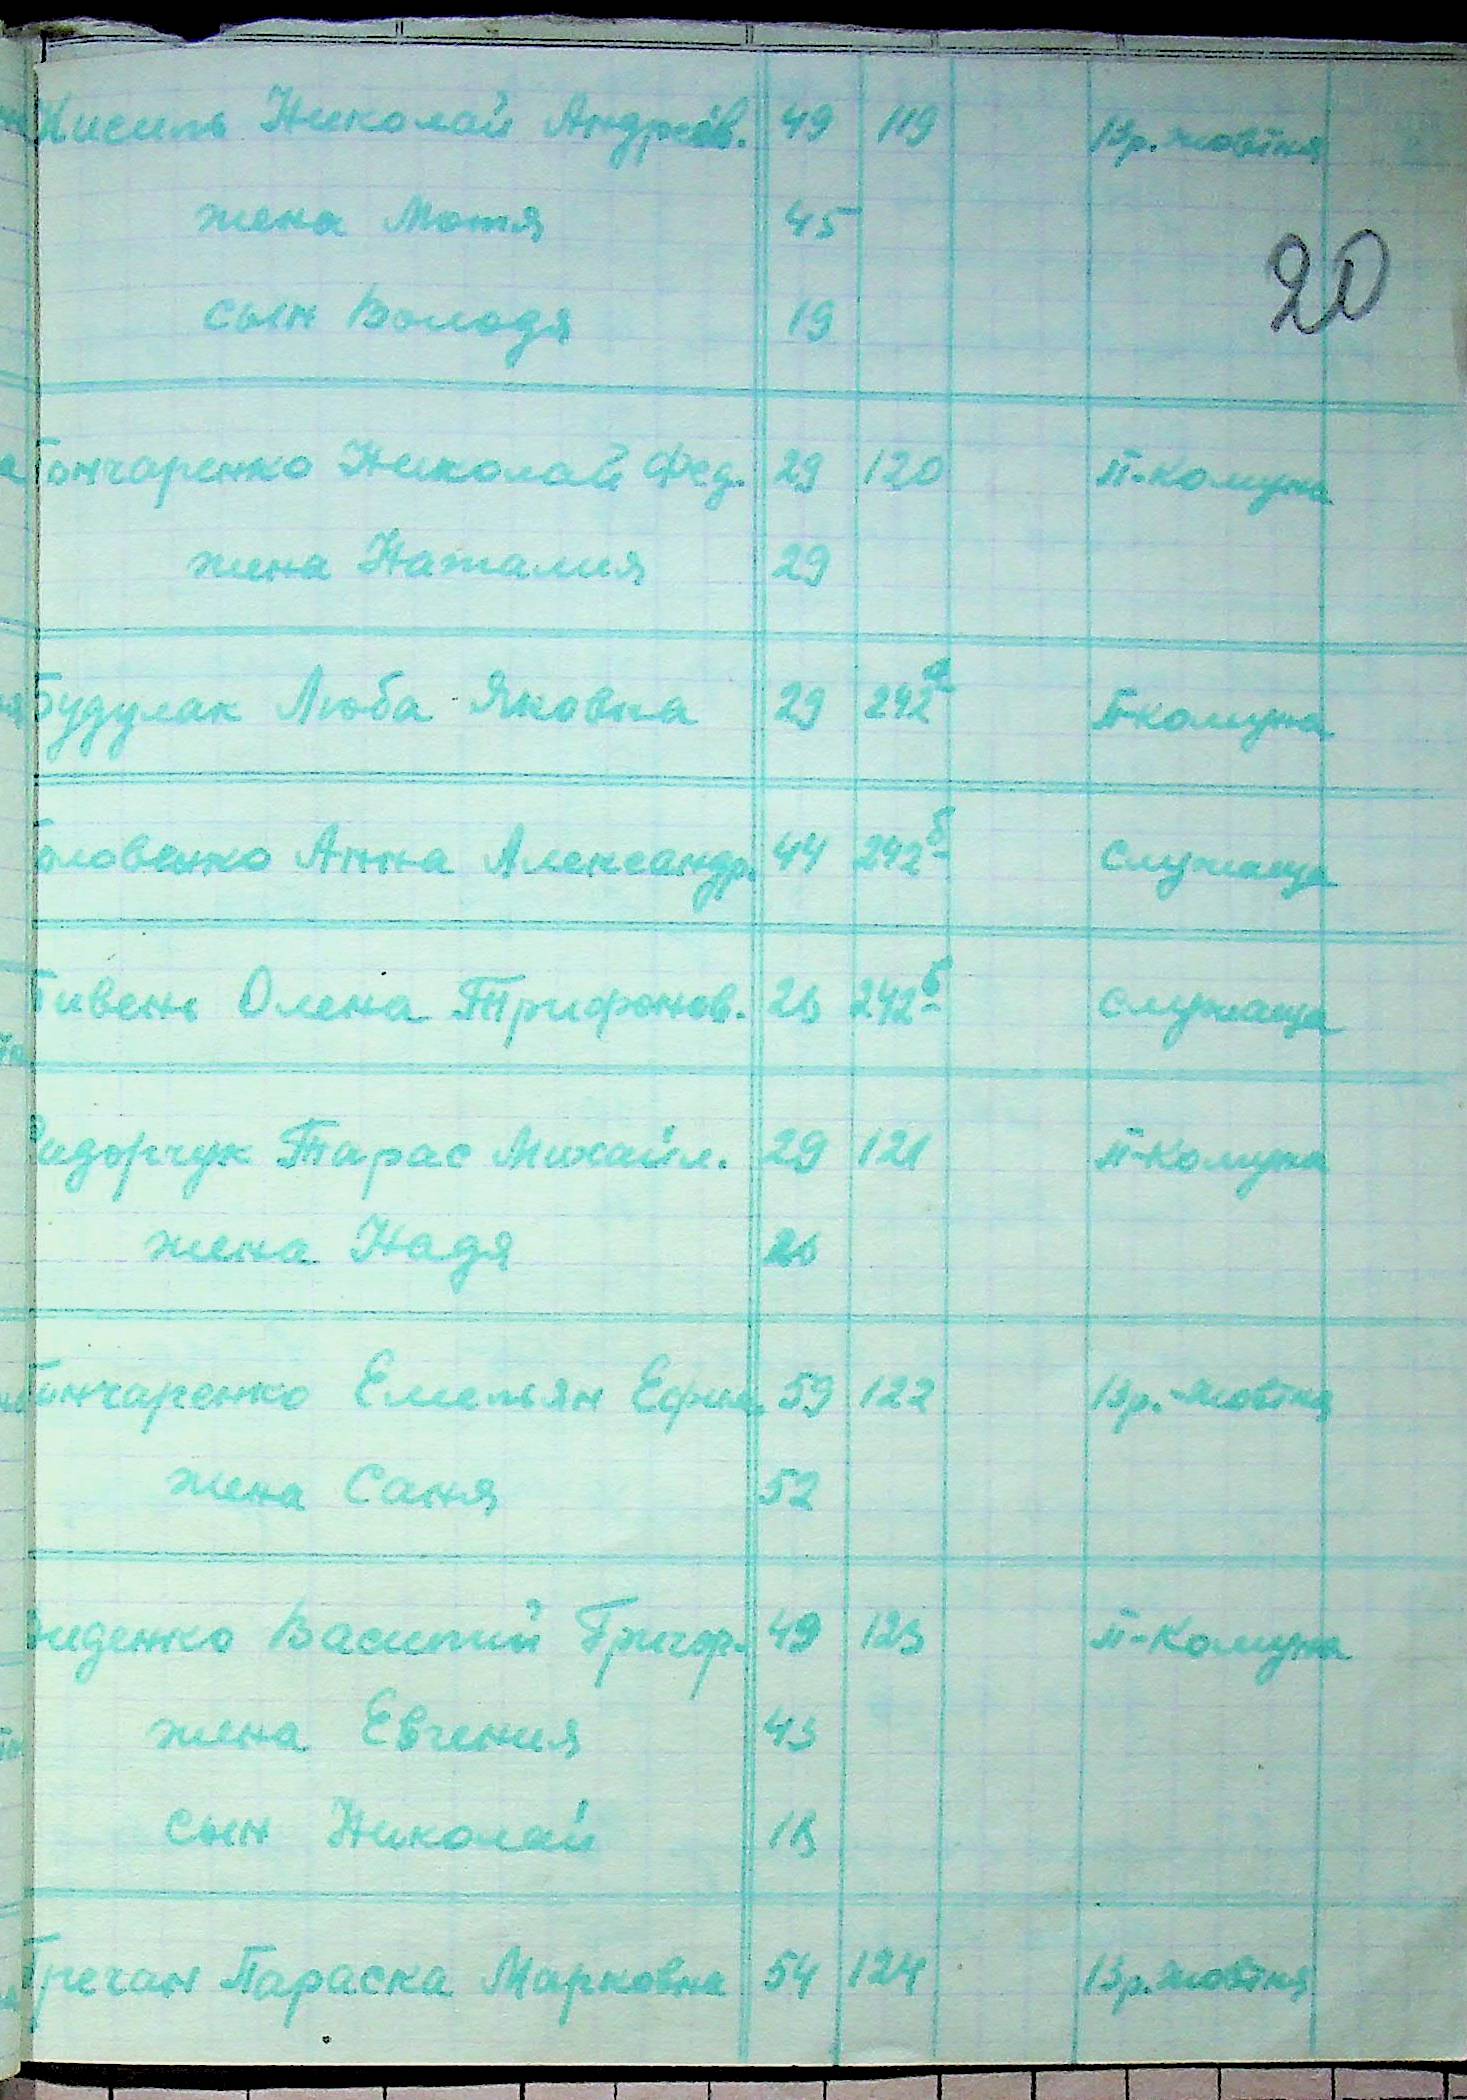 Кисиль Николай Андреев. 49 119 13р. жовтня
жена Мотя 45
20
сын Володя 19
Гончаренко Николай Фед. 29 120 П-комуна
жена Наталия 29
Будулак Люба Яковна 29 242а П-комуна
Головенко Анна Александр. 44 242б Служаща
Бивень Олена Трифонов. 23 242б Служаща
Сидорчук Тарас Михайл. 29 121 П-комуна
жена Надя
Гончаренко Емельян Ефим. 59 122 13р. жовтня
жена Саня 52
Василий Григор. 49 123 П-комуна
жена Евгения 43
сын Николай 18
Гречан Параска Марковна 54 124 13р. жовтня